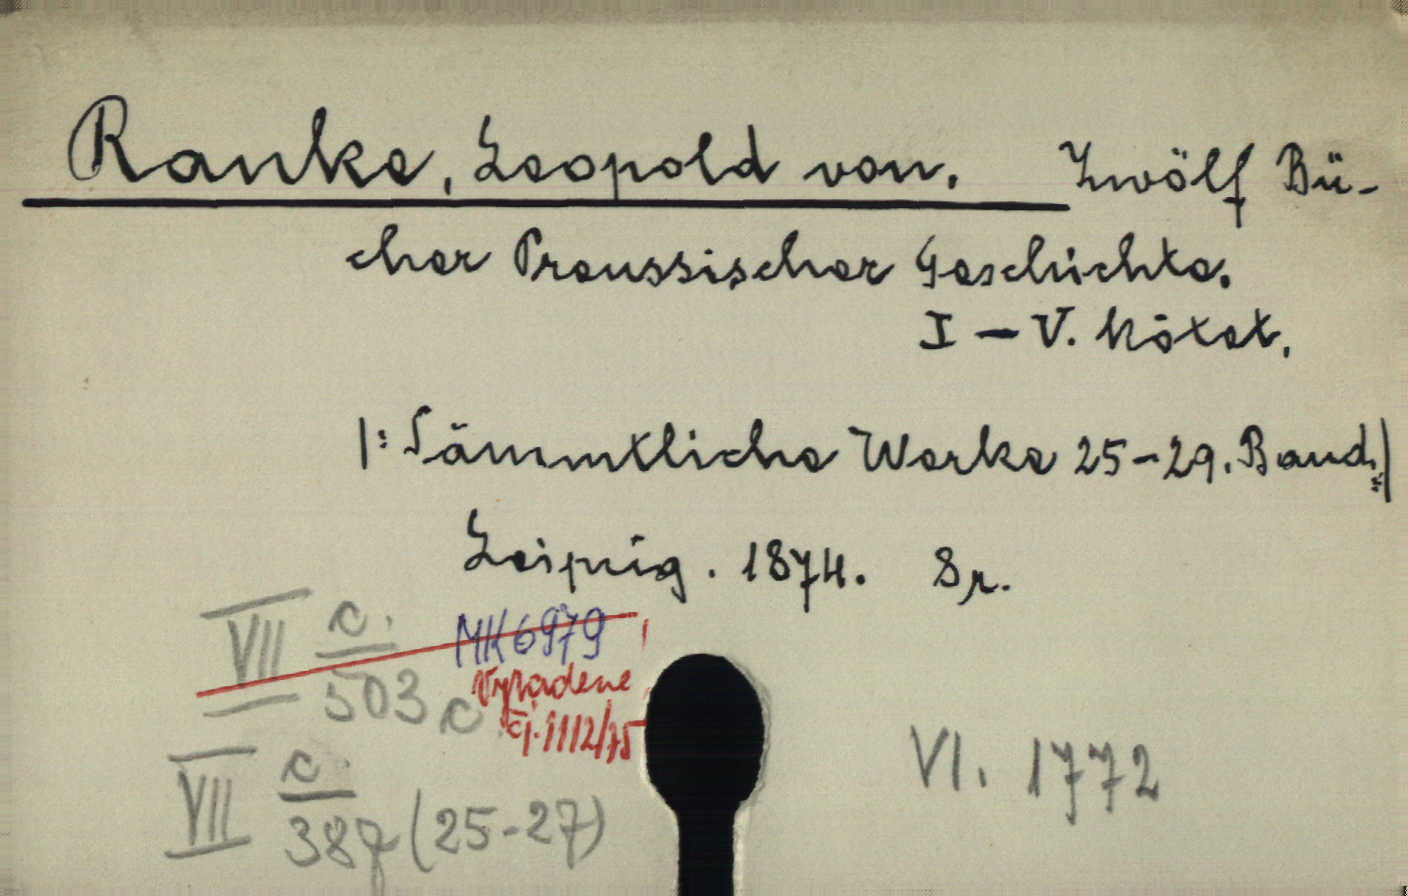 Ranke, Leopold von. Zwölf Bü-
cher Preussischer Geschichte.
I – V. kötet.
|: Sämmtliche Werke 25-29. Band. :|
Leipzig. 1874. 8r.
VII c. 503 c
MK 6979
Vyřadene
čj. 1112/75
VII c. 387 (25-27)
VI. 1772